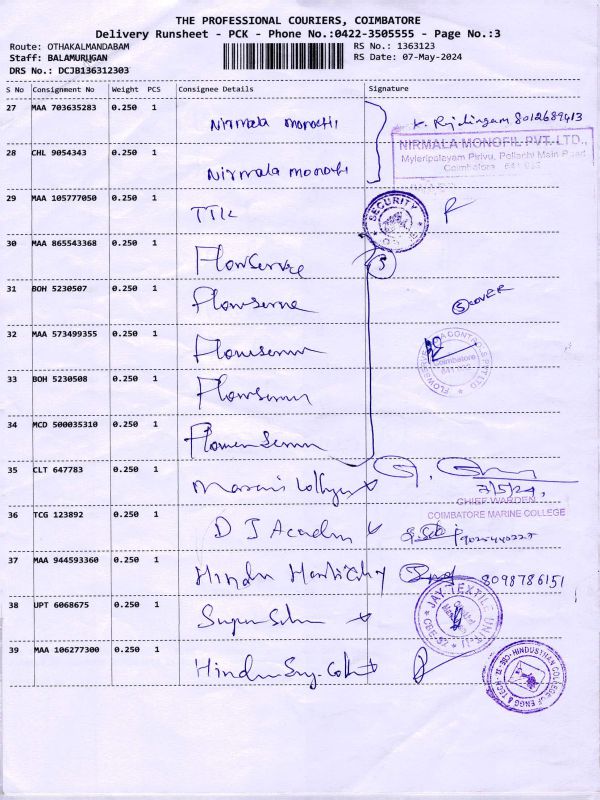 THE PROFESSIONAL COURIERS, COIMBATORE
Delivery Runsheet - PCK - Phone No.:0422-3505555 - Page No.:3
Route: OTHAKALMANDABAM RS No.: 1363123
Staff: BALAMURUGAN RS Date: 07-May-2024
DRS No.: DCJB136312303
S No Consignment No Weight PCS Consignee Details Signature
27 MAA 703635283 0.250 1 Nirmala 8012689413
NIRMALA MONOFIL PVT. LTD.,
Myleripalayam Pirivu, Pollachi Main Road
Coimbatore
28 CHL 9054343 0.250 1 Nirmala
29 MAA 105777050 0.250 1 TTK SECURITY
30 MAA 865543368 0.250 1 Flowserve
31 BOH 5230507 0.250 1 Flowserve 5 COVER
32 MAA 573499355 0.250 1 Flowserve Coimbatore
33 BOH 5230508 0.250 1 Flowserve
34 MCD 500035310 0.250 1
35 CLT 647783 0.250 1 7/5/24,
CHIEF WARDEN
COIMBATORE MARINE COLLEGE
36 TCG 123892 0.250 1 D J
37 MAA 944593360 0.250 1 Hindu 8098786151
38 UPT 6068675 0.250 1 JAY TEXTILE UNIT-II
39 MAA 106277300 0.250 1 HINDUSTHAN COLLEGE OF ENGG & TECH